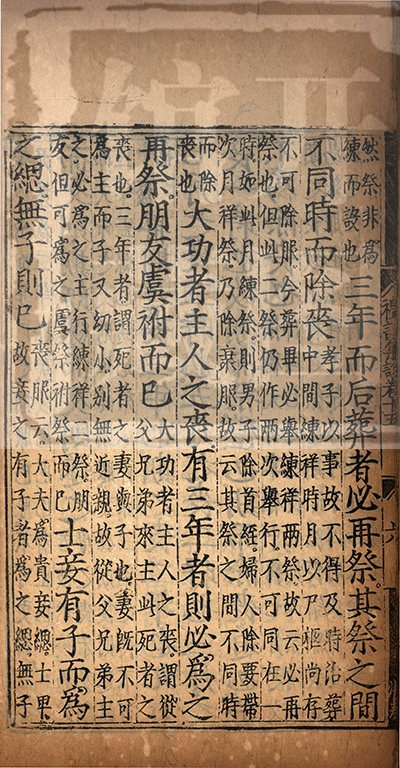 然祭非為
練而設也
三年而后葬者必再祭其祭之間
不同時而除喪
孝子以事故不得及時治葬
中間練祥時月以尸柩尚存
不可除服今葬畢必舉練祥兩祭故云必再
祭也但此二祭仍作兩次舉行不可同在一
時如此月練祭則男子除首絰婦人除要帶
次月祥祭乃除衰服故云其祭之間不同時
而除
喪也
大功者主人之喪有三年者則必為之
再祭朋友虞祔而已
大功者主人之喪謂從
父兄弟來主此死者之
喪也三年者謂死者之妻與子也妻既不可
為主而子又幼小別無近親故從父兄弟主
之必為之主行練祥二祭朋
友但可為之虞祭祔祭而已
士妾有子而為
之緦無子則已
喪服云大夫為貴妾緦士卑
故妾之有子者為之緦無子